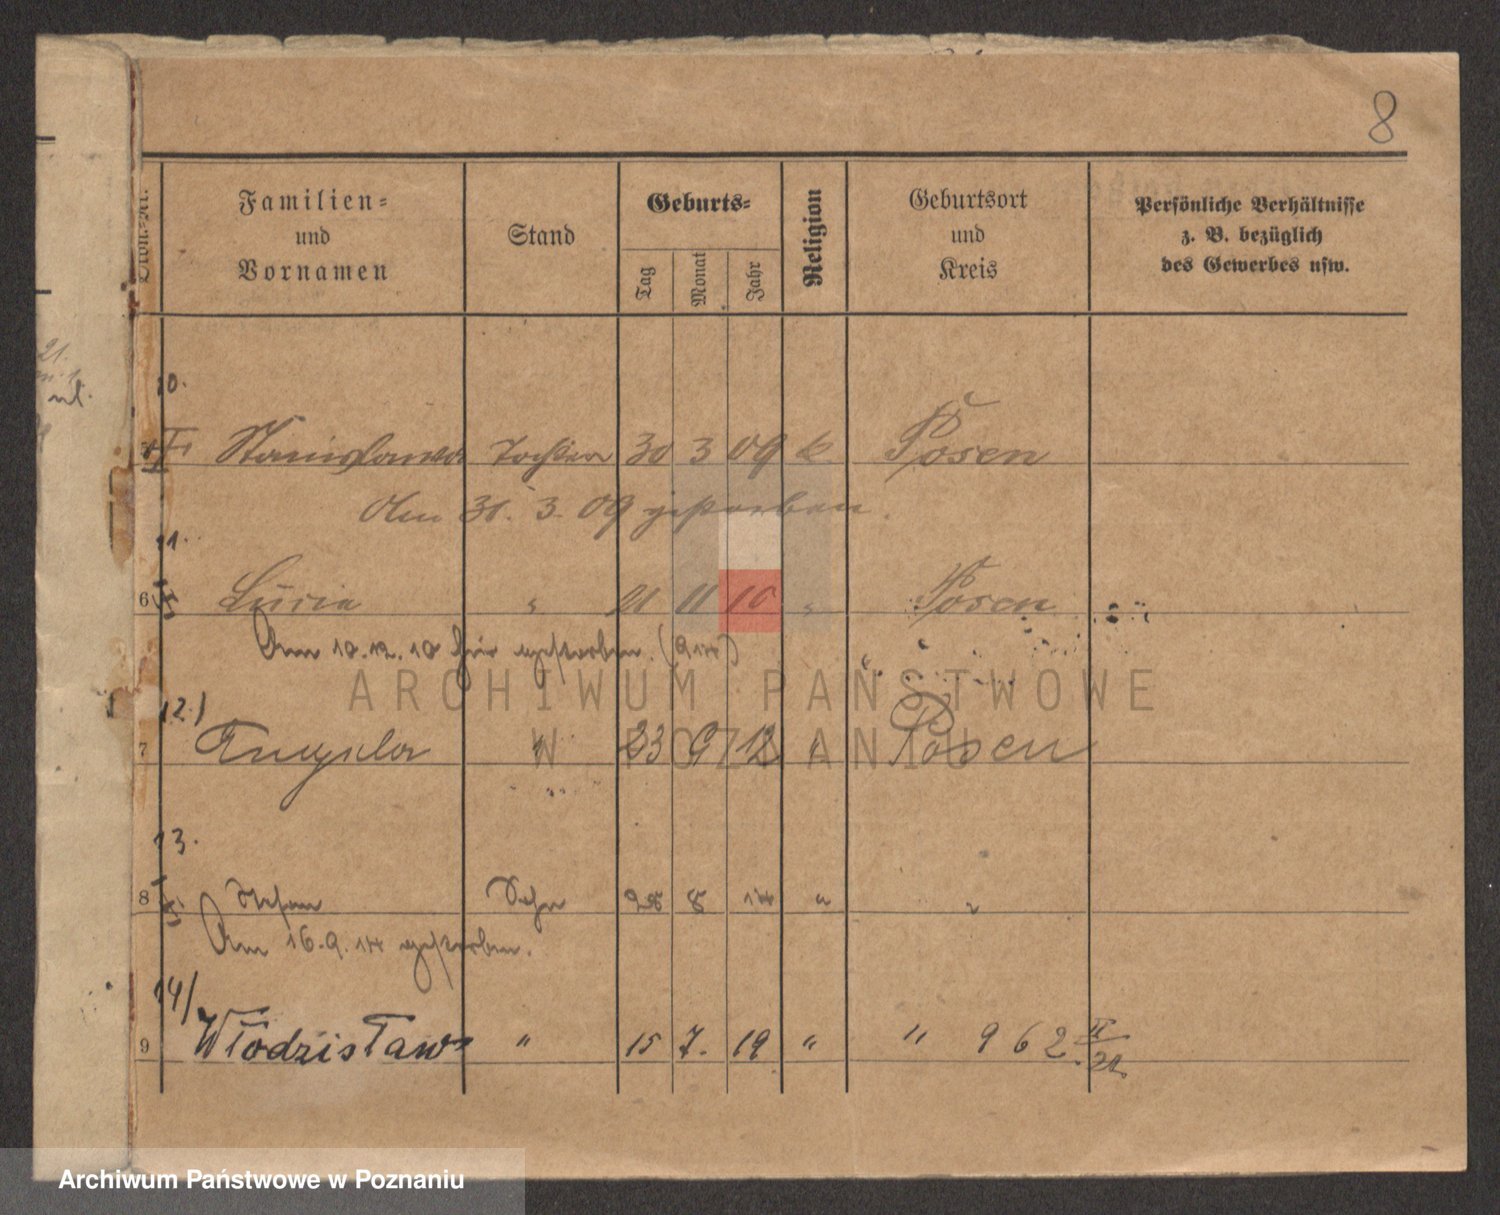 8
Familien=
und
Vornamen
Stand
Geburts=
Tag Monat Jahr
Religion
Geburtsort
und
Kreis
Persönliche Verhältnisse
z. B. bezüglich
des Gewerbes usw.
21.
10.
Stanislawa Tochter 30 3 09 k Posen
den 31. 3. 09 gestorben.
11.
6 Lucia " 21 11 10 " Posen
Am 10.12.10 hier gestorben. (914)
ARCHIWUM PAŃSTWOWE
W POZNANIU
12.)
7 Angela " 23 9 12 " Posen
13.
8 Stefan Sohn 28 8 14 " "
Am 16.9.14 gestorben.
14/
9 Włodzisław " 15 7. 19 " " 962 II/21.
Archiwum Państwowe w Poznaniu